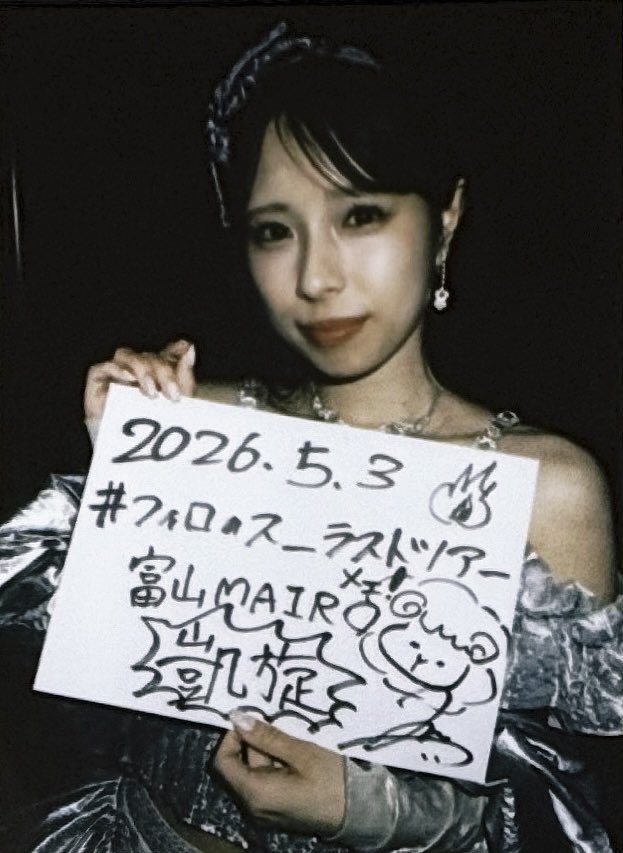 2026.5.3
#フィロのス_ラストツアー
富山MAIRO
メェ!
凱旋